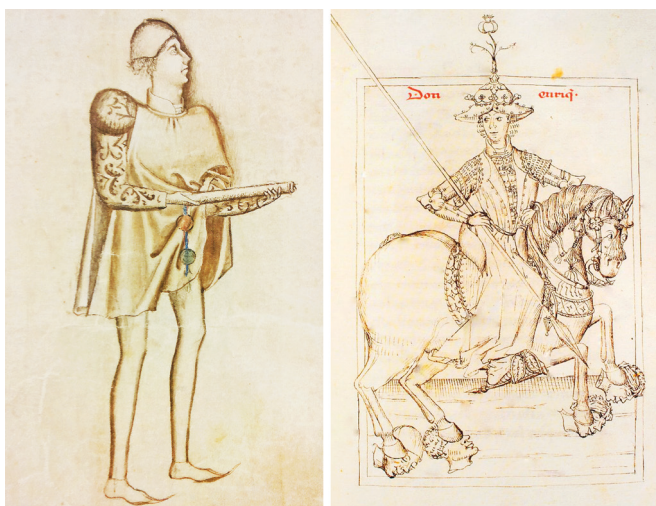 Don enriq̃.